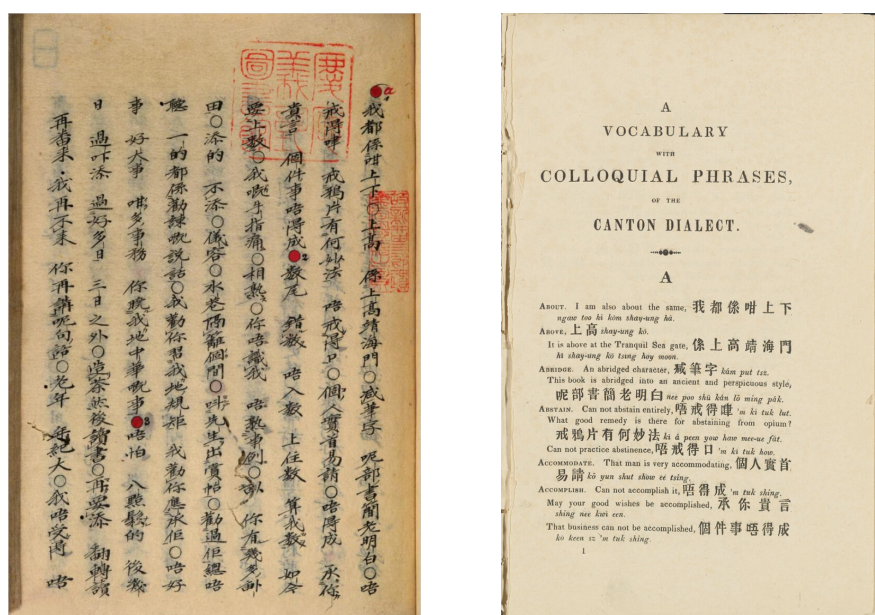 a
我都係咁上下〇上高 係上高靖海門〇減筆字 呢部書簡老明白〇唔
戒得嘥 戒鴉片有何妙法 唔戒得口〇個人實首易請〇唔得成 承你
貴言 個件事唔得成 2 數尾 錯數 唔入數 上住數 算我數 如今
要上數〇我嘅手指痛〇相熟〇你唔識我 唔熟事例〇 你有幾多
田〇添的 不添〇儀容〇水巷隔離個間〇叫先生出賞帖〇勸過佢總唔
聽 一的都係勸諫嘅說話〇我勸你習我地規矩 我勸你應承佢〇唔好
事 好大事 咁多事務 你曉我地中華嘅事 3 唔怕 八點鬆的 後幾
日 過吓添 過好多日 三日之外〇 然後讀書〇再要添 翻轉讀
再番來 我再不來 你再講呢句話〇老年 年紀大〇我唔受得 唔
A
VOCABULARY
WITH
COLLOQUIAL PHRASES,
OF THE
CANTON DIALECT.
A
ABOUT. I am also about the same, 我都係咁上下
ngaw too hi kóm shay-ung há.
ABOVE, 上高 shay-ung kó.
It is above at the Tranquil Sea gate, 係上高靖海門
hi shay-ung kó tsing hoy moon.
ABRIDGE. An abridged character, 筆字 kám put tsz.
This book is abridged into an ancient and perspicuous style,
呢部書簡老明白 nee poo shü kán lō ming pák.
ABSTAIN. Can not abstain entirely, 唔戒得嘥 'm ki tuk lut.
What good remedy is there for abstaining from opium?
戒鴉片有何妙法 ki á peen yow haw mee-ue fát.
Can not practice abstinence, 唔戒得口 'm ki tuk how.
ACCOMMODATE. That man is very accommodating, 個人實首
易請 kò yun shut show ee tsing.
ACCOMPLISH. Can not accomplish it, 唔得成 'm tuk shing.
May your good wishes be accomplished, 承你貴言
shing nee kwi een.
That business can not be accomplished, 個件事唔得成
ko keen sz 'm tuk shing.
1